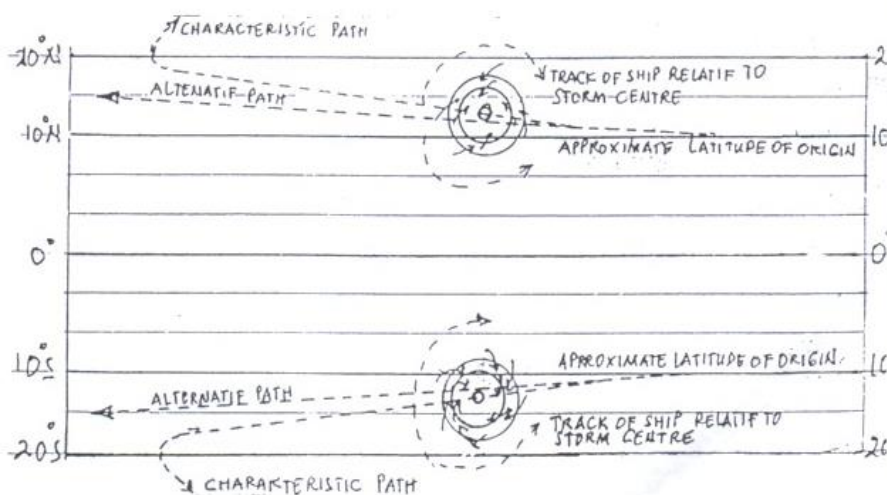 CHARACTERISTIC PATH
20°N
2
TRACK OF SHIP RELATIF TO
STORM CENTRE
ALTENATIF PATH
10°N
10
APPROXIMATE LATITUDE OF ORIGIN
0°
0°
10°S
10
APPROXIMATE LATITUDE OF ORIGIN
ALTERNATIE PATH
TRACK OF SHIP RELATIF TO
STORM CENTRE
20°S
20
CHARAKTERISTIC PATH